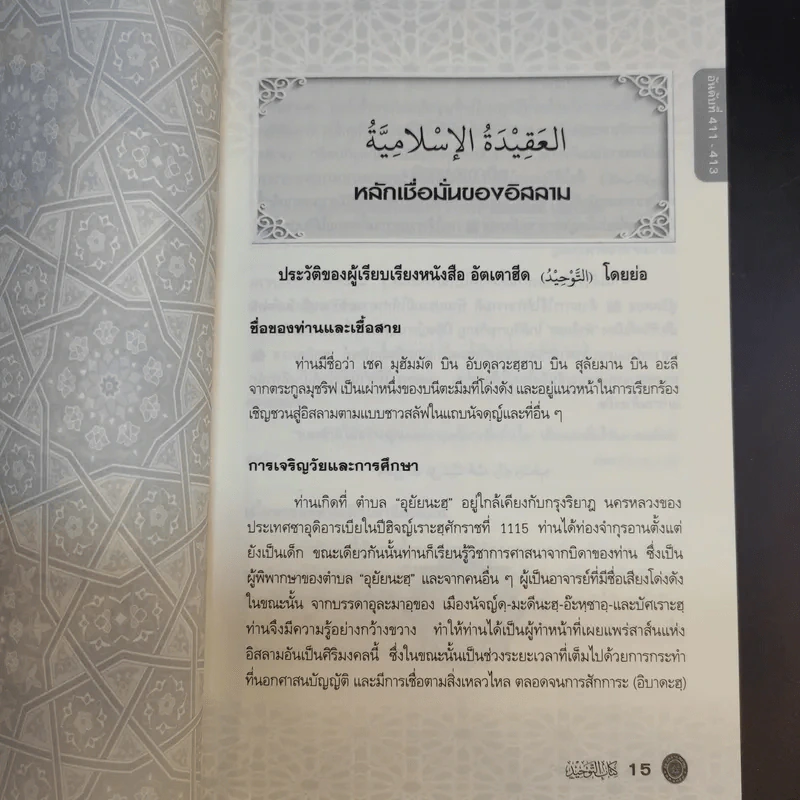 อันดับที่ 411 - 413
العَقِيْدَةُ الإِسْلَامِيَّةُ
หลักเชื่อมั่นของอิสลาม
ประวัติของผู้เรียบเรียงหนังสือ อัตเตาฮีด (التَّوْحِيْدُ) โดยย่อ
ชื่อของท่านและเชื้อสาย
ท่านมีชื่อว่า เชค มุฮัมมัด บิน อับดุลวะฮฺฮาบ บิน สุลัยมาน บิน อะลี
จากตระกูลมุชริฟ เป็นเผ่าหนึ่งของบนีตะมีมที่โด่งดัง และอยู่แนวหน้าในการเรียกร้อง
เชิญชวนสู่อิสลามตามแบบชาวสลัฟในแถบนัจดฺญ์และที่อื่น ๆ
การเจริญวัยและการศึกษา
ท่านเกิดที่ ตำบล “อุยัยนะฮฺ” อยู่ใกล้เคียงกับกรุงริยาฎ นครหลวงของ
ประเทศซาอุดิอารเบียในปีฮิจญ์เราะฮฺศักราชที่ 1115 ท่านได้ท่องจำกุรอานตั้งแต่
ยังเป็นเด็ก ขณะเดียวกันนั้นท่านก็เรียนรู้วิชาการศาสนาจากบิดาของท่าน ซึ่งเป็น
ผู้พิพากษาของตำบล “อุยัยนะฮฺ” และจากคนอื่น ๆ ผู้เป็นอาจารย์ที่มีชื่อเสียงโด่งดัง
ในขณะนั้น จากบรรดาอุละมาอฺของ เมืองนัจญ์ดฺ-มะดีนะฮฺ-อ๊ะหฺซาอฺ-และบัศเราะฮฺ
ท่านจึงมีความรู้อย่างกว้างขวาง ทำให้ท่านได้เป็นผู้ทำหน้าที่เผยแพร่สาส์นแห่ง
อิสลามอันเป็นศิริมงคลนี้ ซึ่งในขณะนั้นเป็นช่วงระยะเวลาที่เต็มไปด้วยการกระทำ
ที่นอกศาสนบัญญัติ และมีการเชื่อตามสิ่งเหลวไหล ตลอดจนการสักการะ (อิบาดะฮฺ)
كِتَابُ التَّوْحِيْدِ 15